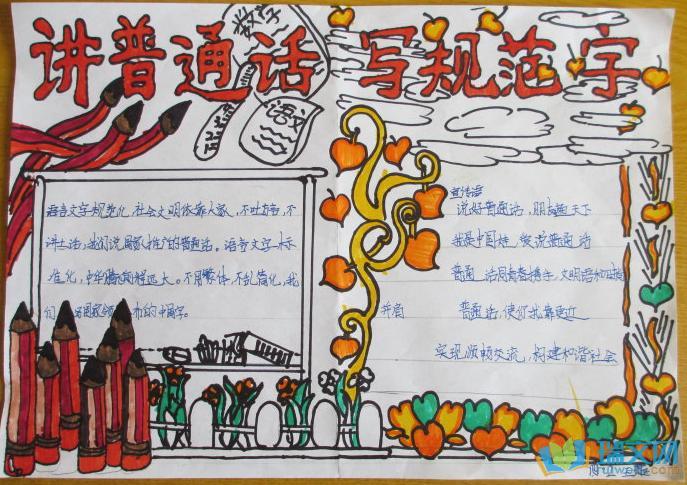 讲普通话 写规范字
数学
语文
语言文字规范化，社会文明依靠大家，不吐方言，不
讲土话，我们说国家推广的普通话。语言文字标
准化，中华腾飞前程远大。不用繁体，不乱简化，我
们写国家颁布的中国字。
宣传语
说好普通话，朋友遍天下
我是中国娃，爱说普通话
普通话同青春携手，文明语和
普通话，使你我靠更近
实现顺畅交流，构建和谐社会
瑞文网
ruiwen.com